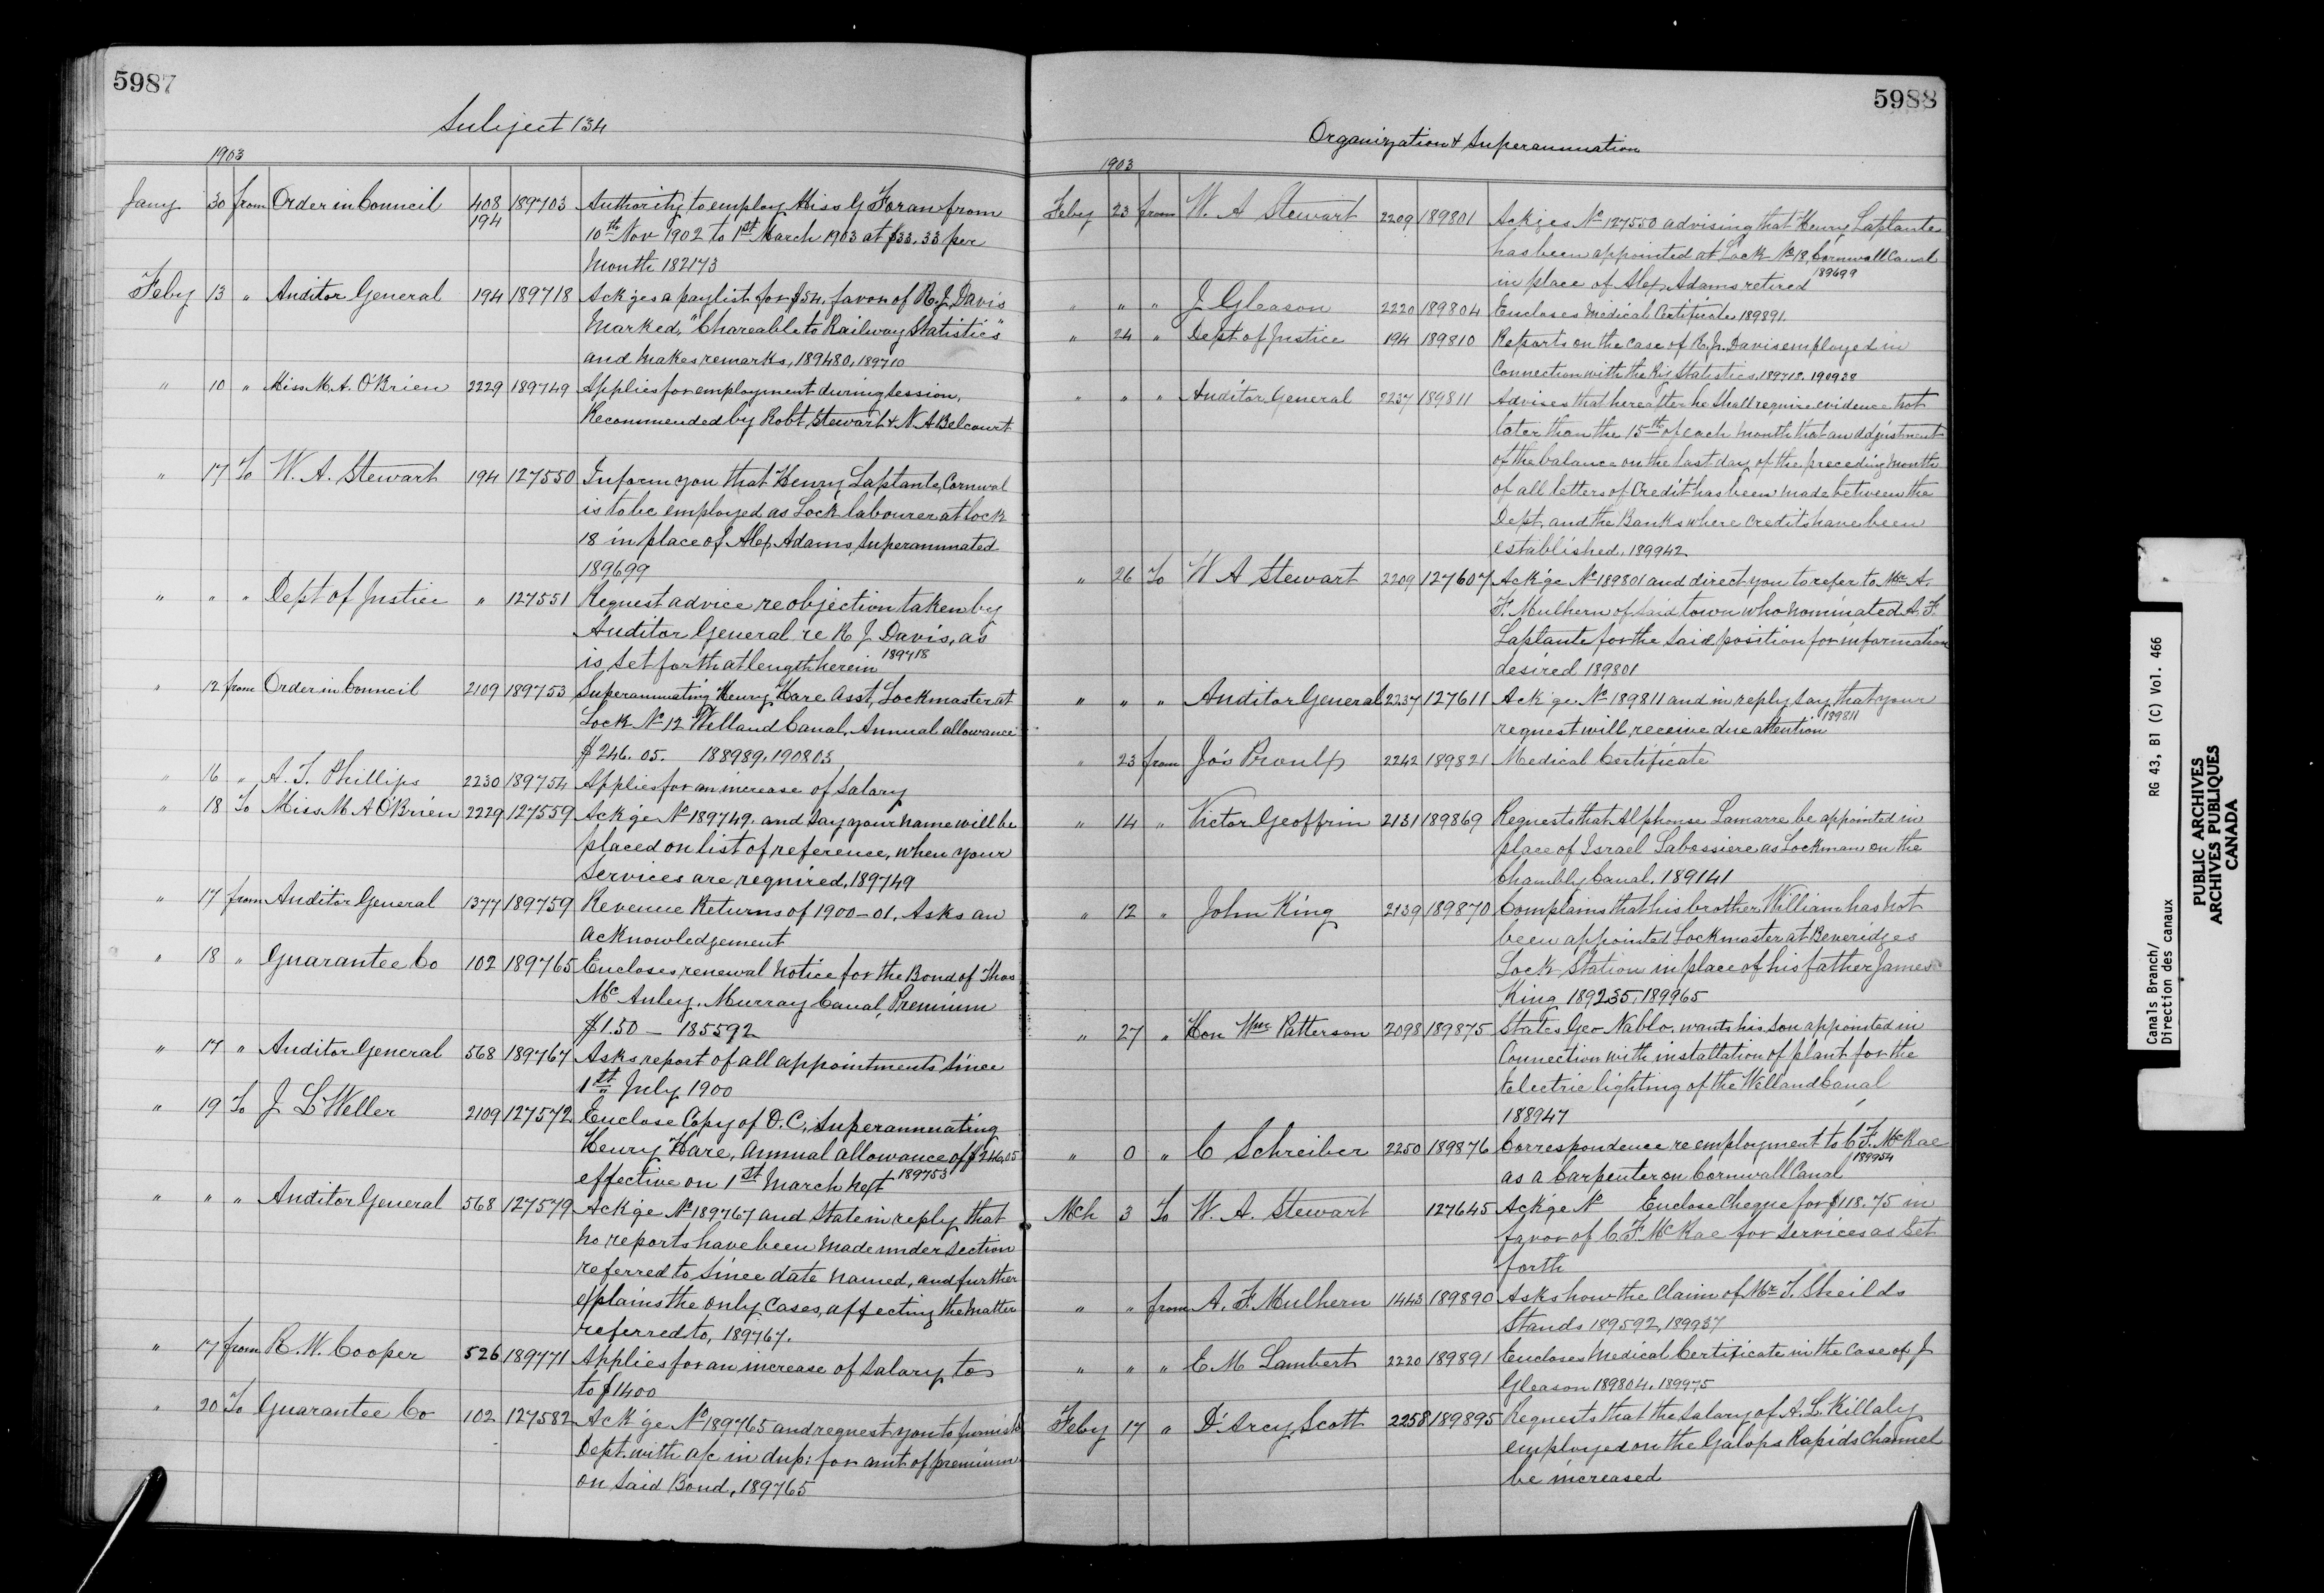 5987
Subject 134
1903
Jany 30 from Order in Council 408 189703 Authority to employ Miss G Foran from
194 10th Nov 1902 to 1st March 1903 at $33.33 per
Month 182173
Feby 13 " Auditor General 194 189718 Ack'ges a paylist for $54. favor of R. J. Davis
Marked, "Chareable to Railway Statistics"
and makes remarks, 189480, 189710
" 10 " Miss M. A. O'Brien 2229 189749 Applies for employment during session,
Recommended by Robt Stewart & N. A Belcourt
" 17 To W. A. Stewart 194 127550 Inform you that Henry Laplante, Cornwal
is to be employed as Lock labourer at lock
18 in place of Alex Adams, superannuated
189699
" " " Dept of Justice " 127551 Request advice re objection taken by
Auditor General re R J Davis, as
is set forth at length herein 189718
" 12 from Order in Council 2109 189753 Superannuating Henry Hare Asst, Lockmaster at
Lock No 12 Welland Canal, Annual allowance
$246.05. 188989, 190803
" 16 " A. T. Phillips 2230 189754 Applies for an increase of Salary
" 18 To Miss M A O'Brien 2229 127559 Ack'ge No 189749. and say your name will be
placed on list of reference, when your
services are required, 189749
" 17 from Auditor General 1377 189759 Revenue Returns of 1900-01, Asks an
acknowledgement
" 18 " Guarantee Co 102 189765 Encloses renewal notice for the Bond of Thos
McAuley, Murray Canal, Premium
$1.50 — 185592
" 17 " Auditor General 568 189767 Asks report of all appointments since
1st July 1900
" 19 To J L Weller 2109 127572 Enclose Copy of O.C. Superannuating
Henry Hare, annual allowance of $246.05
effective on 1st March next 189753
" " " Auditor General 568 127579 Ack'ge No 189767 and state in reply that
no reports have been made under section
referred to since date named, and further
explains the only cases, affecting the matter
referred to, 189767.
" 17 from R. W. Cooper 526 189771 Applies for an increase of salary to
to $1400
" 20 To Guarantee Co 102 127582 Ack'ge No 189765 and request you to furnish
Dept. with a/c in dup: for amt of premium
on said Bond, 189765
5988
Organization & Superannuation
1903
Feby 23 from W. A Stewart 2209 189801 Ackges No 127550 advising that Henry Laplante
has been appointed at Lock No 18, Cornwall Canal
in place of Alex Adams retired 189699
" " " J Gleason 2220 189804 Encloses Medical Certificate 189891.
" 24 " Dept of Justice 194 189810 Reports on the case of R. J. Davis employed in
Connection with the Ry Statistics, 189718. 190938
" " " Auditor General 2237 189811 Advises that hereafter he shall require evidence not
later than the 15th of each month that an adjustment
of the balance on the last day of the preceding month
of all letters of Credit has been made between the
Dept, and the Banks where credits have been
established, 189942
" 26 To W A Stewart 2209 127607 Ack'ge No 189801 and direct you to refer to Mr A.
F. Mulhern of said town who nominated A. F.
Laplante for the said position for information
desired 189801
" " " Auditor General 2237 127611 Ack'ge No 189811 and in reply say that your
request will receive due attention 189811
" 23 from Jos Proulx 2242 189821 Medical Certificate
" 14 " Victor Geoffrin 2131 189869 Requests that Alphonse Lamarre be appointed in
place of Israel Labossiere as Lockman on the
Chambly Canal. 189141
" 12 " John King 2139 189870 Complains that his brother William has not
been appointed Lockmaster at Beveridges
Lock Station in place of his father James
King 189235, 189965
" 27 " Hon Wm Patterson 2098 189875 States Geo Nablo. wants his son appointed in
Connection with installation of plant for the
Electric lighting of the Welland Canal
188947
" 0 " C Schreiber 2250 189876 Correspondence re employment to C F. McRae
as a Carpenter on Cornwall Canal 189954
Mch 3 To W. A. Stewart 127645 Ack'ge No Enclose Cheque for $118.75 in
favor of C. F. McRae for services as set
forth
" " from A. F. Mulhern 1443 189890 Asks how the Claim of Mr T. Sheilds
Stands 189592, 189937
" " " E M Lambert 2220 189891 Encloses Medical Certificate in the case of J
Gleason 189804, 189975
Feby 17 " D'Arcy Scott 2258 189895 Requests that the salary of A. L. Killaly
employed on the Galops Rapids Channel
be increased
Canals Branch/ RG 43, B1 (C) Vol. 466
Direction des canaux
PUBLIC ARCHIVES
ARCHIVES PUBLIQUES
CANADA